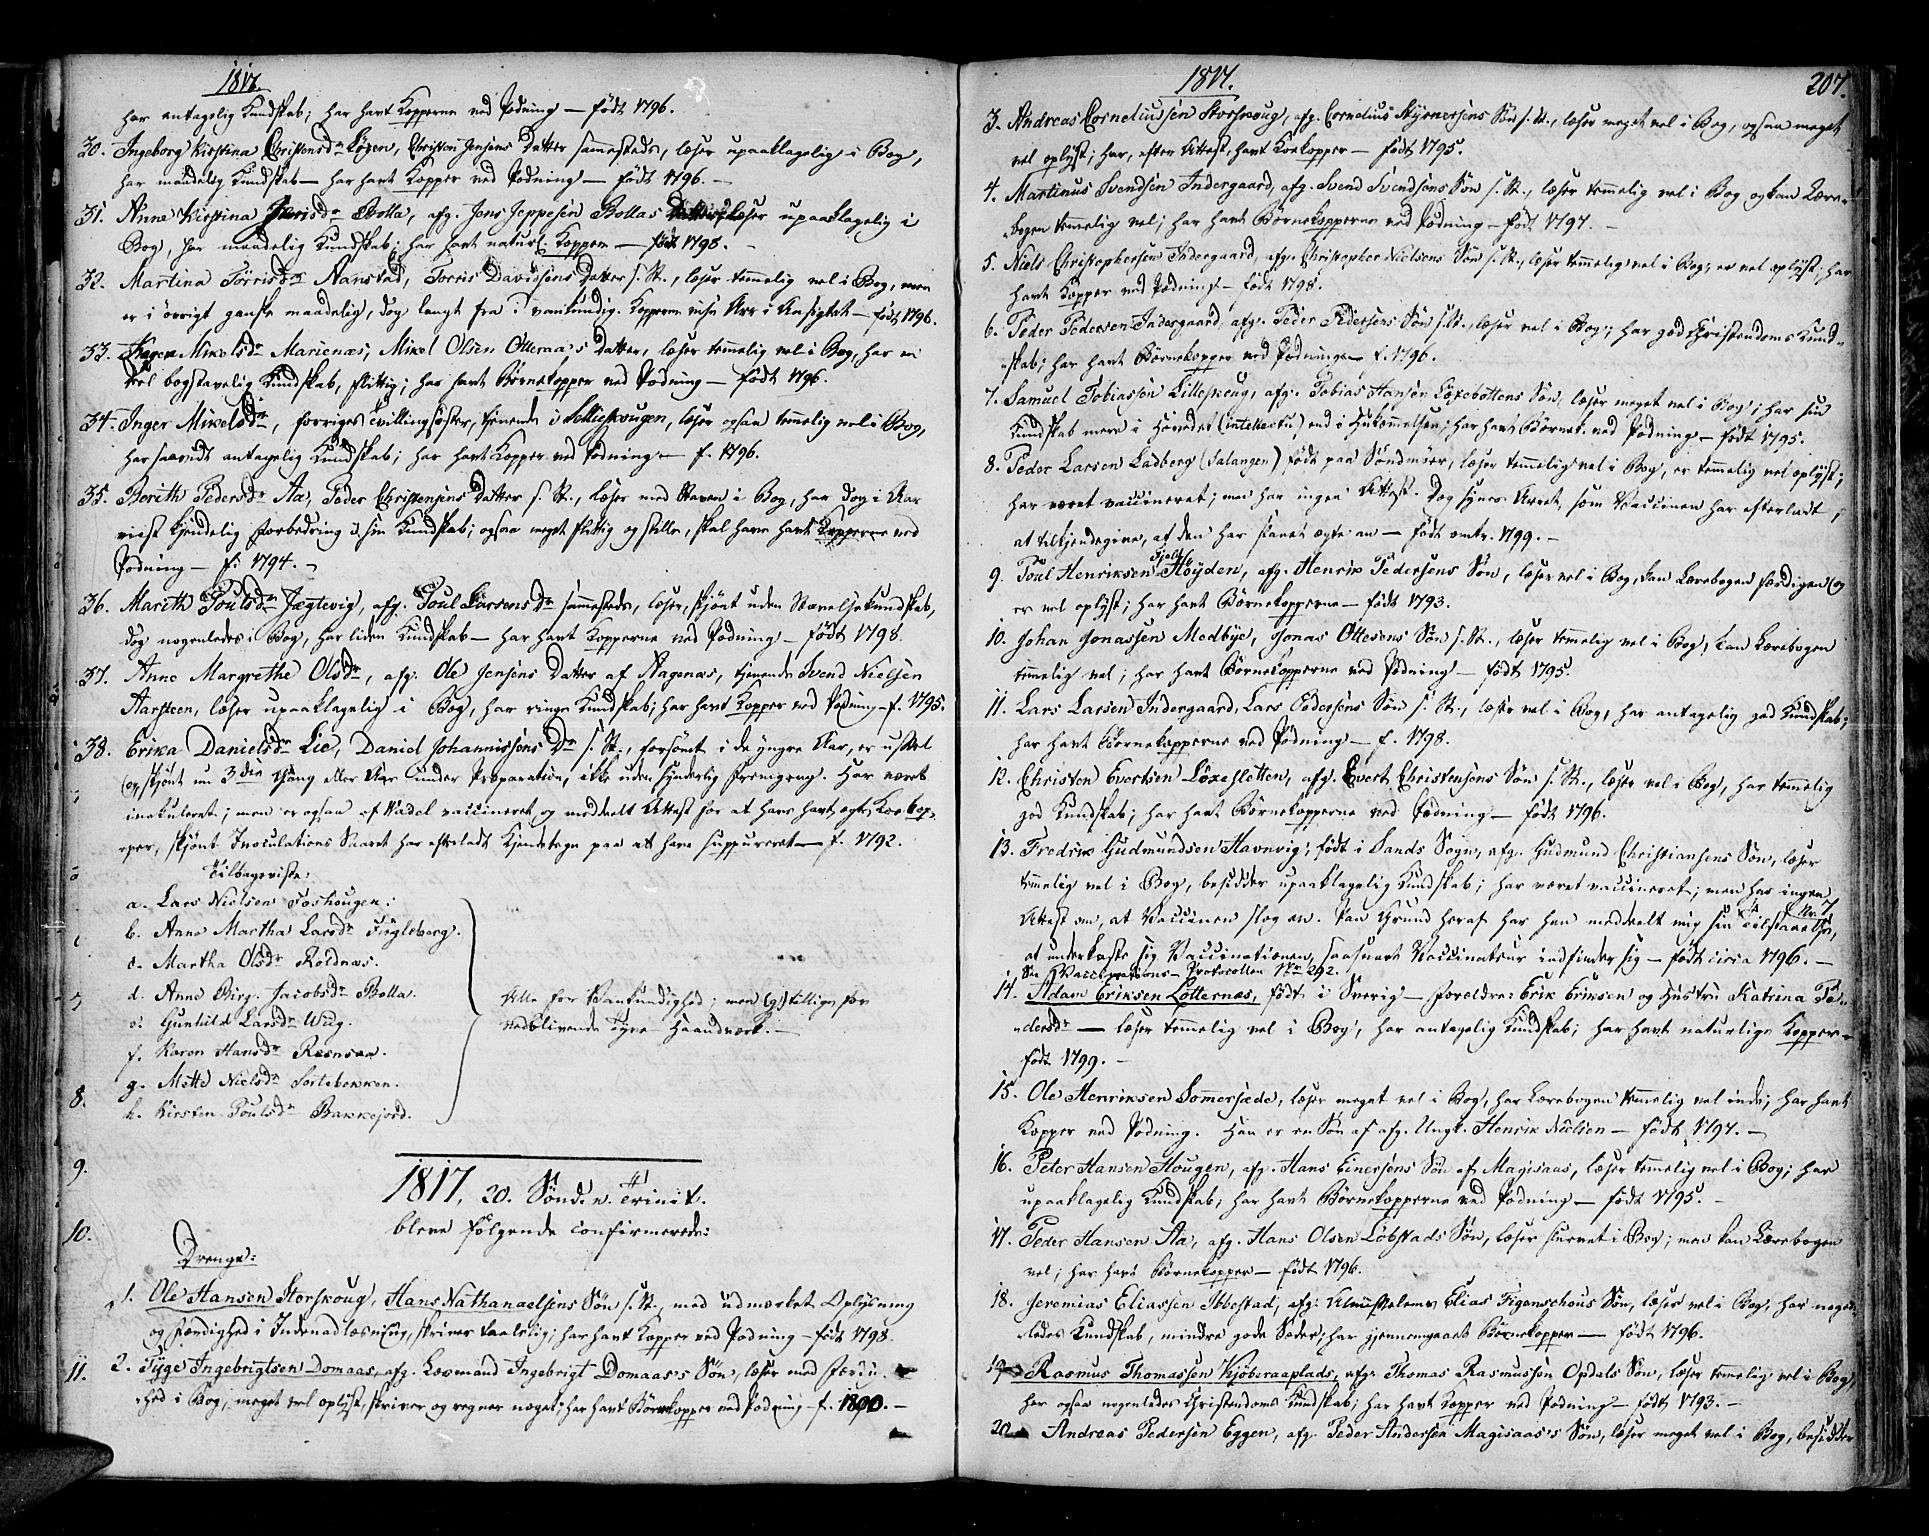 1817.
har antagelig Kundskab; har havt Kopperne ved Podning — født 1796.
30. Ingeborg Kirstina Christensdr Løxen, Christen Jensens Datter sammesteds, læser upaaklagelig i Bog,
har maadelig Kundskab — har havt Kopper ved Podning — født 1796. —
31. Anne Kirstina Bolla, afg. Jens Jeppesen Bollas læser upaaklagelig i
Bog, har maadelig Kundskab; har havt naturl. Kopper — født 1798. —
32. Martina Torrisdr Aanstad, Torris Davidsens Datter s. St., læser temmelig vel i Bog, men
er i øvrigt ganske maadelig, dog langt fra vankundig. Kopperne vise Arr i Ansigtet — født 1796.
33. Karen Mikelsdr Marienæs, Mikel Olsen Otteraa's Datter, læser temmelig vel i Bog, har en
vel bogstavelig Kundskab, flittig; har havt Børnekopper ved Podning — født 1796.
34. Inger Mikelsdr, forriges Tvillingsøster, tienende i Sollieskougen, læser ogsaa temmelig vel i Bog,
har saavidt antagelig Kundskab; har havt Kopper ved Podning — f. 1796.
35. Borith Pedersdr Aa, Peder Christensens Datter s. St., læser med Staven i Bog, har dog i Aar
viist kjendelig Forbedring i sin Kundskab; ogsaa meget flittig og stille, skal have havt Kopperne ved
Podning — f. 1794. —
36. Mareth Poulsdr Jægtevig, afg. Poul Larsens Dr sammesteds, læser, skjønt uden Stavelsekundskab,
dog nogenledes i Bog, har liden Kundskab — har havt Kopperne ved Podning — født 1798.
37. Anne Margrethe Olsdr, afg. Ole Jensens Datter af Aagenæs, tjenende Svend Nielsen
Aarsteen, læser upaaklagelig i Bog, har ringe Kundskab; har havt Kopper ved Podning — f. 1795.
38. Erika Danielsdr Lie, Daniel Johannissens Dr s. St., forsømt i de yngre Aar, er ussel
og, skjønt nu 3die Gang eller Aar under Præparation, ikke uden synderlig Fremgang. Har været
inokuleret; men er ogsaa af Wadel vaccineret og meddeelt Attest for at have havt ægte Koekop-
per, skjønt Inoculations Saaret har efterladt Kjendetegn paa at have suppureret — f. 1792.
Tilbageviste:
a. Lars Nielsen Foshougen.
b. Anne Martha Larsdr Fugleberg.
c. Martha Olsdr Roldnæs.
d. Anne Birg. Jacobsdr Bolla.
e. Gunhild Larsdr Wiig.
f. Karen Hansdr
g. Mette Nielsdr Sortebekken.
h. Kirsten Poulsdr Bakkejord.
Alle for Vankundighed; men (g) tillige for
vedblivende Tyve Haandværk. —
8.
9.
10.
11.
1817, 20. Sønd. n. Trinit.
bleve følgende confirmerede:
Drenge:
1. Ole Hansen Storskoug, Hans Nathanaelsens Søn s. St., med udmærket Oplysning
og Færdighed i Indenadlæsning, skriver taalelig; har havt Kopper ved Podning — født 1798.
2. Tyge Ingebrigtsen Domaas, afg. Lovmand Ingebrigt Domaas's Søn, læser med Færdig-
hed i Bog, meget vel oplyst, skriver og regner noget; har havt Børnekopper ved Podning — f. 1800. —
1817.
207.
3. Andreas Corneliusen Storskoug, afg. Cornelius Styrnersens Søn s. St., læser meget vel i Bog, ogsaa meget
vel oplyst; har, efter Attest, havt Koekopper — født 1795.
4. Martinus Svendsen Indergaard, afg. Svend Svendsens Søn s. St., læser temmelig vel i Bog og kan Lære-
bogen temmelig vel; har havt Børnekopperne ved Podning — født 1797. —
5. Niels Christophersen Indergaard, afg. Christopher Nielsens Søn s. St., læser temmelig vel i Bog; er vel oplyst; har
havt Kopper ved Podning — født 1798.
6. Peder Pedersen Indergaard, afg. Peder Pedersens Søn s. St., læser vel i Bog; har god Christendoms Kund-
skab; har havt Børnekopper ved Podning — f. 1796.
7. Samuel Tobiassen Lilleskoug, afg. Tobias Hansen Løxebottens Søn, læser meget vel i Bog; har sin
Kundskab mere i Hovedet (intellectu) end i Hukommelsen; har havt Børnek. ved Podning — født 1795.
8. Peder Larsen Ladberg (Salangen) født paa Søndmøer, læser temmelig vel i Bog, er temmelig vel oplyst;
har været vaccineret; men har ingen Attest. Dog synes Arret, som Vaccinen har efterladt,
at tilkjendegive, at den har slaaet ægte an — født omtr. 1799. —
9. Poul Henriksen Fjeld Høyden, afg. Henrik Pedersens Søn, læser vel i Bog, kan Lærebogen færdigen og
er vel oplyst; har havt Børnekopperne — født 1793.
10. Johan Jonassen Medbye, Jonas Ottesens Søn s. St., læser temmelig vel i Bog, kan Lærebogen
temmelig vel; har havt Børnekopperne ved Podning — født 1795.
11. Lars Larsen Indergaard, Lars Pedersens Søn s. St., læser vel i Bog, har antagelig god Kundskab;
har havt Børnekopperne ved Podning — f. 1798.
12. Christen Evertsen Løxesletten, afg. Evert Christensens Søn s. St., læser vel i Bog, har temmelig
god Kundskab; har havt Børnekopperne ved Podning — født 1796.
13. Fredrik Gudmundsen Havnvig, født i Sands Sogn, afg. Gudmund Christiansens Søn, læser
temmelig vel i Bog, besidder upaaklagelig Kundskab; har været vaccineret; men har ingen
Attest om, at Vaccinen slog an. Paa Grund heraf har han meddeelt mig sin Tilstaaelse,
at underkaste sig Vaccinationen, saasnart Vaccinateur indfinder sig — født circa 1796. —
Se Vaccinations-Protocollen No 292.
14. Adam Eriksen Lotternæs, født i Sverig — Forældre: Erik Eriksen og Hustru Katrina Pe-
dersdr — læser temmelig vel i Bog, har antagelig Kundskab; har havt naturlige Kopper —
født 1799. —
15. Ole Henriksen Sommersæde, læser meget vel i Bog, har Lærebogen temmelig vel inde; har havt
Kopper ved Podning. Han er en Søn af afg. Ungk. Henrik Nielsen — født 1797. —
16. Peter Hansen Hougen, afg. Hans Einersens Søn af Magisaas, læser temmelig vel i Bog; har
upaaklagelig Kundskab; har havt Børnekopperne ved Podning — født 1795. —
17. Peder Hansen Aa, afg. Hans Olsen Løbstads Søn, læser stavet i Bog; men kan Lærebogen
vel; har havt Børnekopper — født 1796.
18. Jeremias Eliassen Ibbestad, afg. Elias Figenschous Søn, læser vel i Bog, har nogen-
ledes Kundskab, mindre gode Sæder; har gjennemgaaet Børnekopper — født 1796.
19. Rasmus Thomassen Kjøberaaplads, afg. Thomas Rasmussen Opdals Søn, læser temmelig vel i Bog,
har ogsaa nogenledes Christendoms Kundskab; har havt Kopper ved Podning — født 1793. —
20. Andreas Pedersen Eggen, afg. Peder Andersen Magisaas's Søn, læser meget vel i Bog, besidder